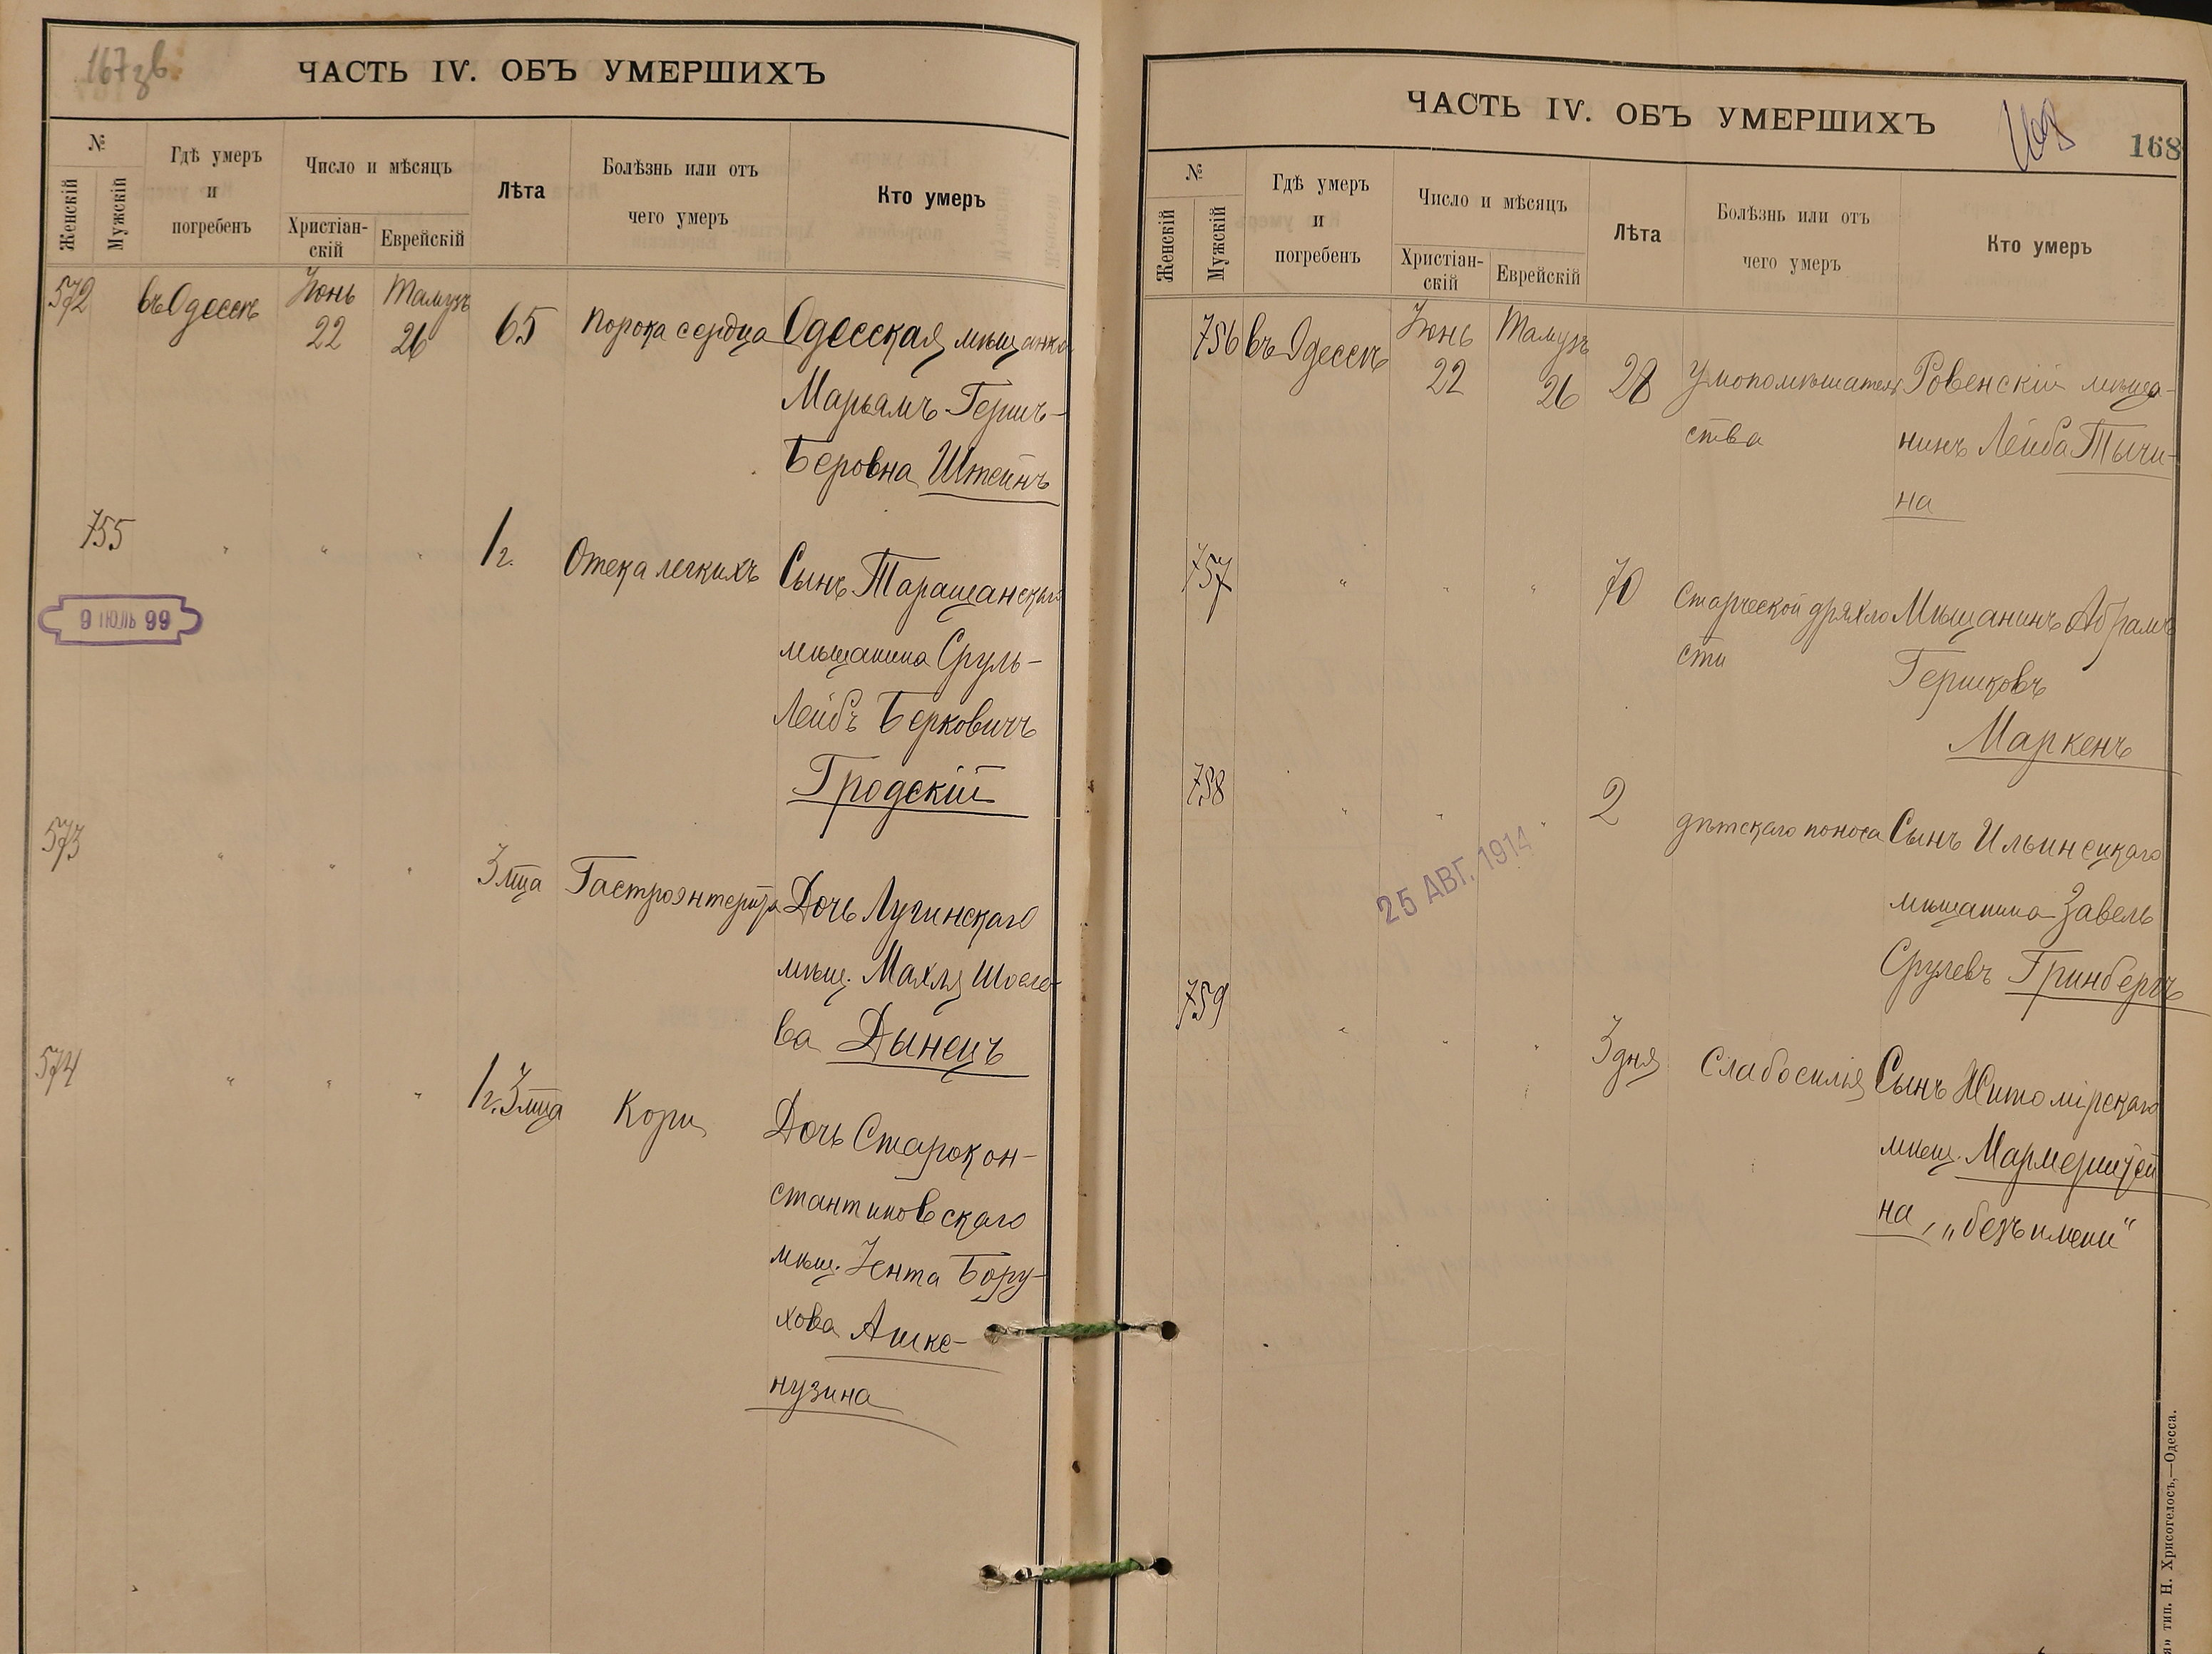 167 зв.
ЧАСТЬ IV. ОБЪ УМЕРШИХЪ
№
Женскій
Мужскій
Гдѣ умеръ
и
погребенъ
Число и мѣсяцъ
Христіан-
скій
Еврейскій
Лѣта
Болѣзнь или отъ
чего умеръ
Кто умеръ
572 въ Одессѣ Іюнь 22 Тамузъ 26 65 Порока сердца Одесская мѣщанка
Марьямъ Гершъ-
Беровна Штейнъ
755 " " " 1 г. Отека легкихъ Сынъ Таращанскаго
мѣщанина Сруль-
Лейбъ Берковичъ
Гродскій
9 ІЮЛЬ 99
573 " " " 3 м-ца Гастроэнтерита Дочь Лугинскаго
мѣщ. Махля Шосео-
ва Дынецъ
574 " " " 1 г. 3 м-ца Кори Дочь Старокон-
стантиновскаго
мѣщ. Іента Бору-
хова Ашке-
нузина
ЧАСТЬ IV. ОБЪ УМЕРШИХЪ
168
168
№
Женскій
Мужскій
Гдѣ умеръ
и
погребенъ
Число и мѣсяцъ
Христіан-
скій
Еврейскій
Лѣта
Болѣзнь или отъ
чего умеръ
Кто умеръ
756 въ Одессѣ Іюнь 22 Тамузъ 26 28 Умопомѣшатель Ровенскій мѣща-
ства нинъ Лейба Тычи-
на
757 " " " 70 Старческой дряхло Мѣщанинъ Абрамъ
сти Гершковъ
Маркенъ
758 " " " 2 дѣтскаго поноса Сынъ Ильинецкаго
мѣщанина Завель
Срулевъ Гринбергъ
25 АВГ. 1914
759 " " " 3 дня Слабосилія Сынъ Житомірскаго
мѣщ. Мармерштей
на, „безъ имени“
я» тип. Н. Хрисогелосъ,—Одесса.